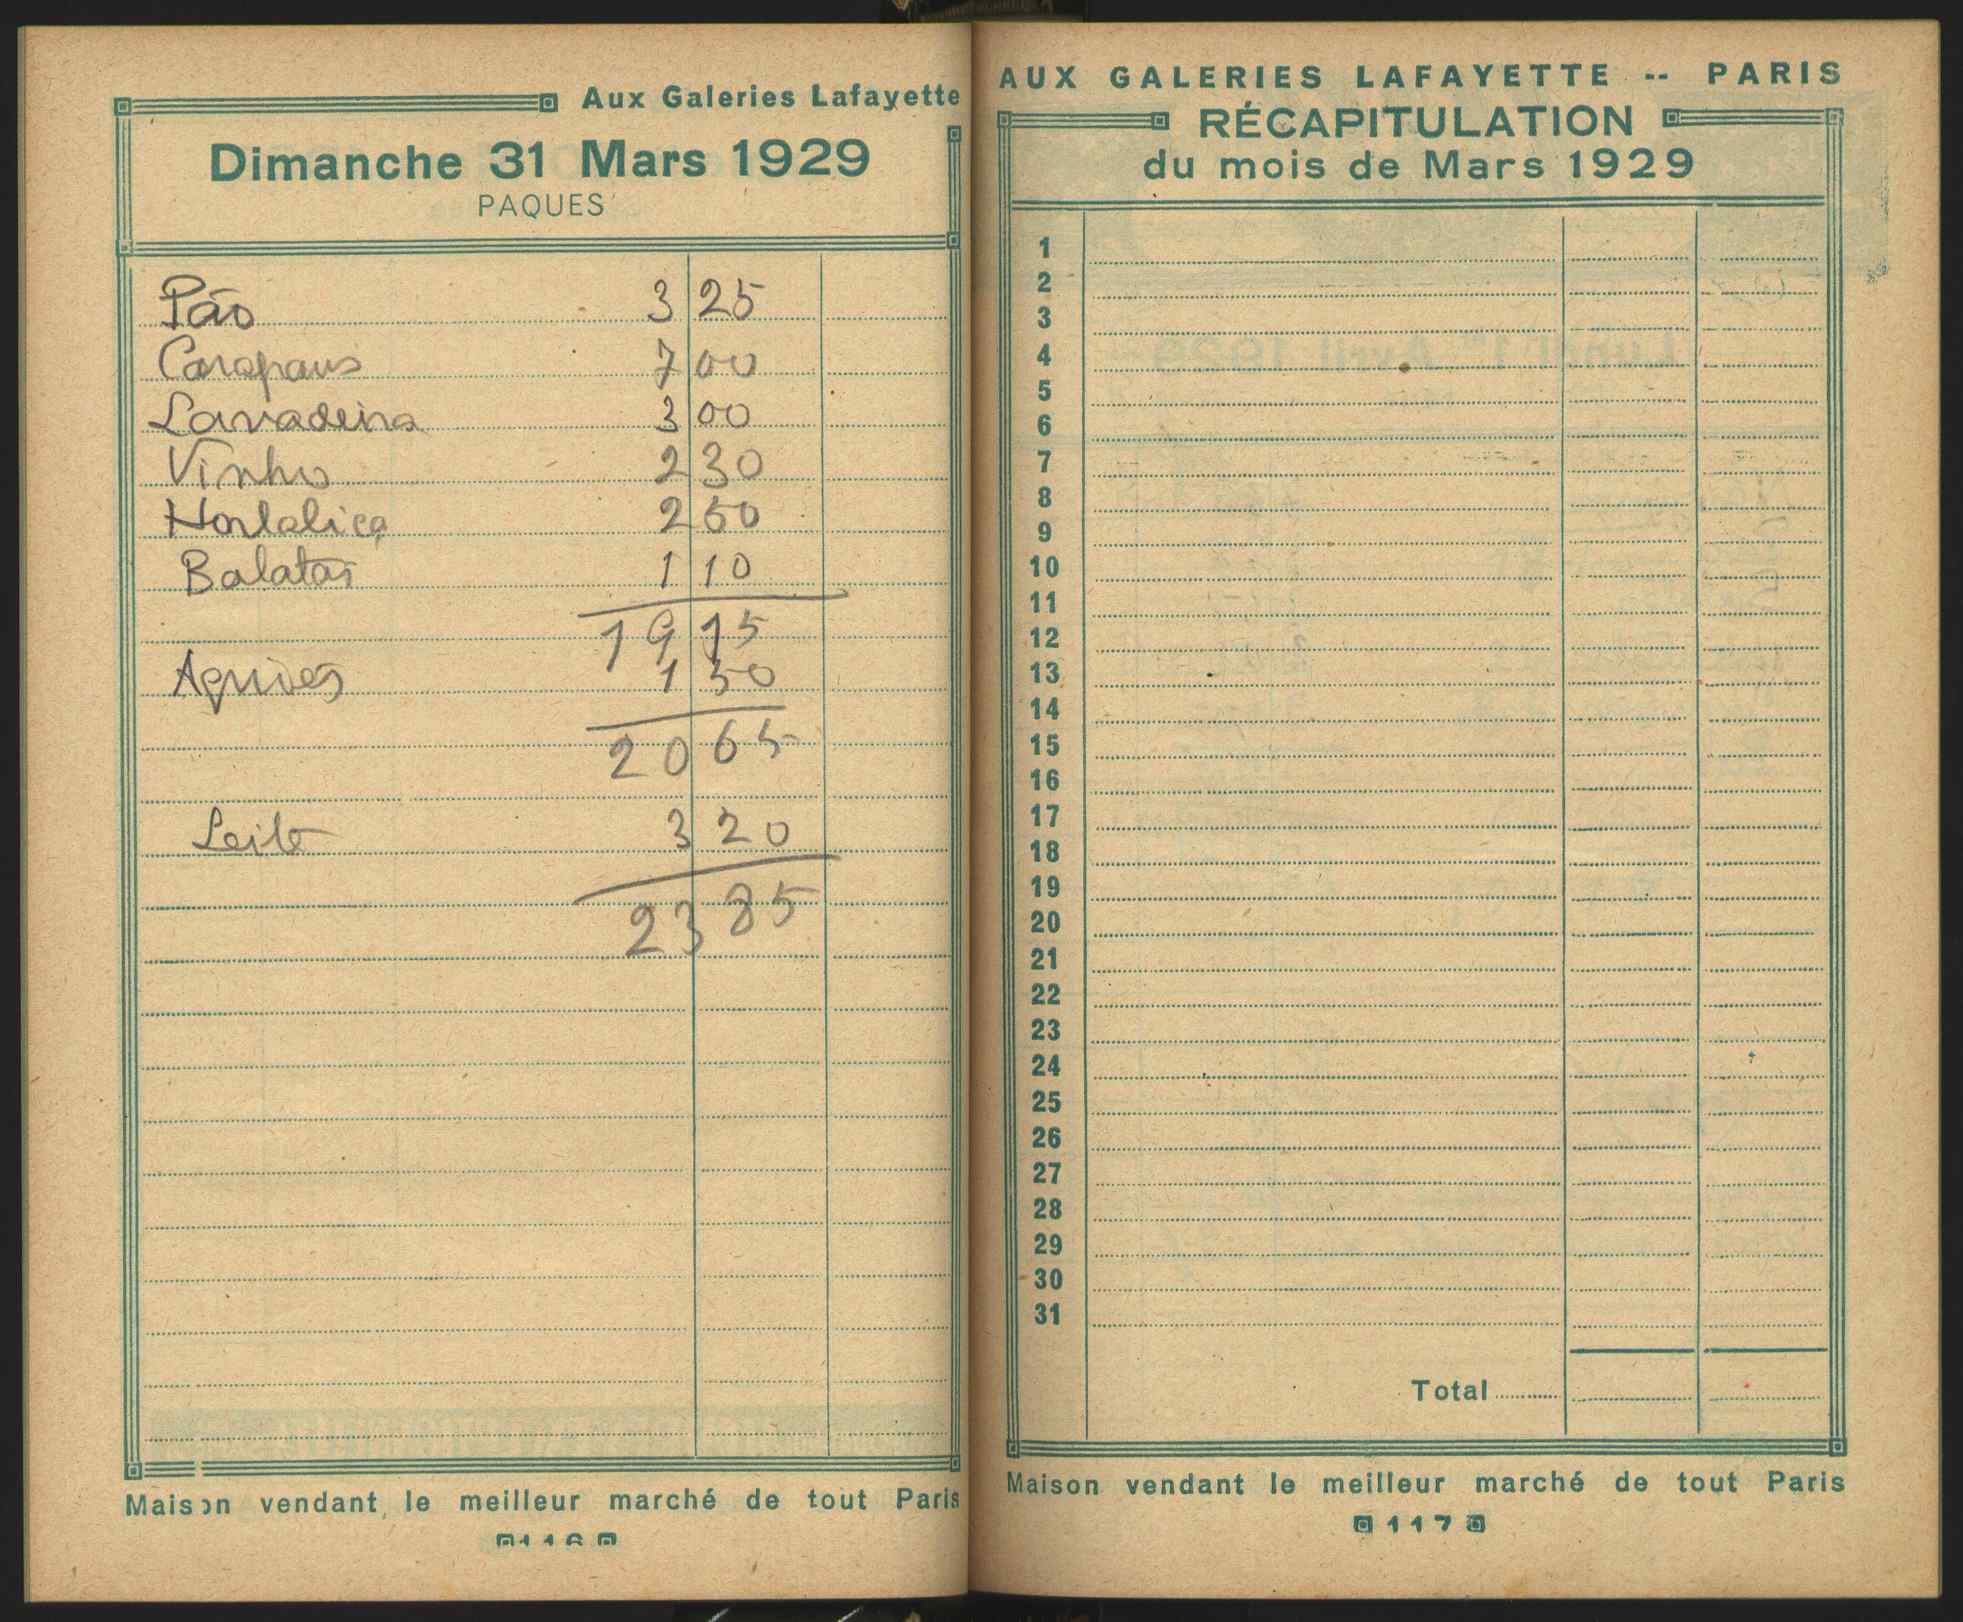 Aux Galeries Lafayette
Dimanche 31 Mars 1929
PAQUES
Pão 3 25
Carapaus 7 00
Lavadeira 3 00
Vinho 2 30
Hortaliça 2 50
Batatas 1 10
19 15
Agriões 1 50
20 65
Leite 3 20
23 85
Maison vendant le meilleur marché de tout Paris
116
AUX GALERIES LAFAYETTE -- PARIS
RÉCAPITULATION
du mois de Mars 1929
1
2
3
4
5
6
7
8
9
10
11
12
13
14
15
16
17
18
19
20
21
22
23
24
25
26
27
28
29
30
31
Total
Maison vendant le meilleur marché de tout Paris
117